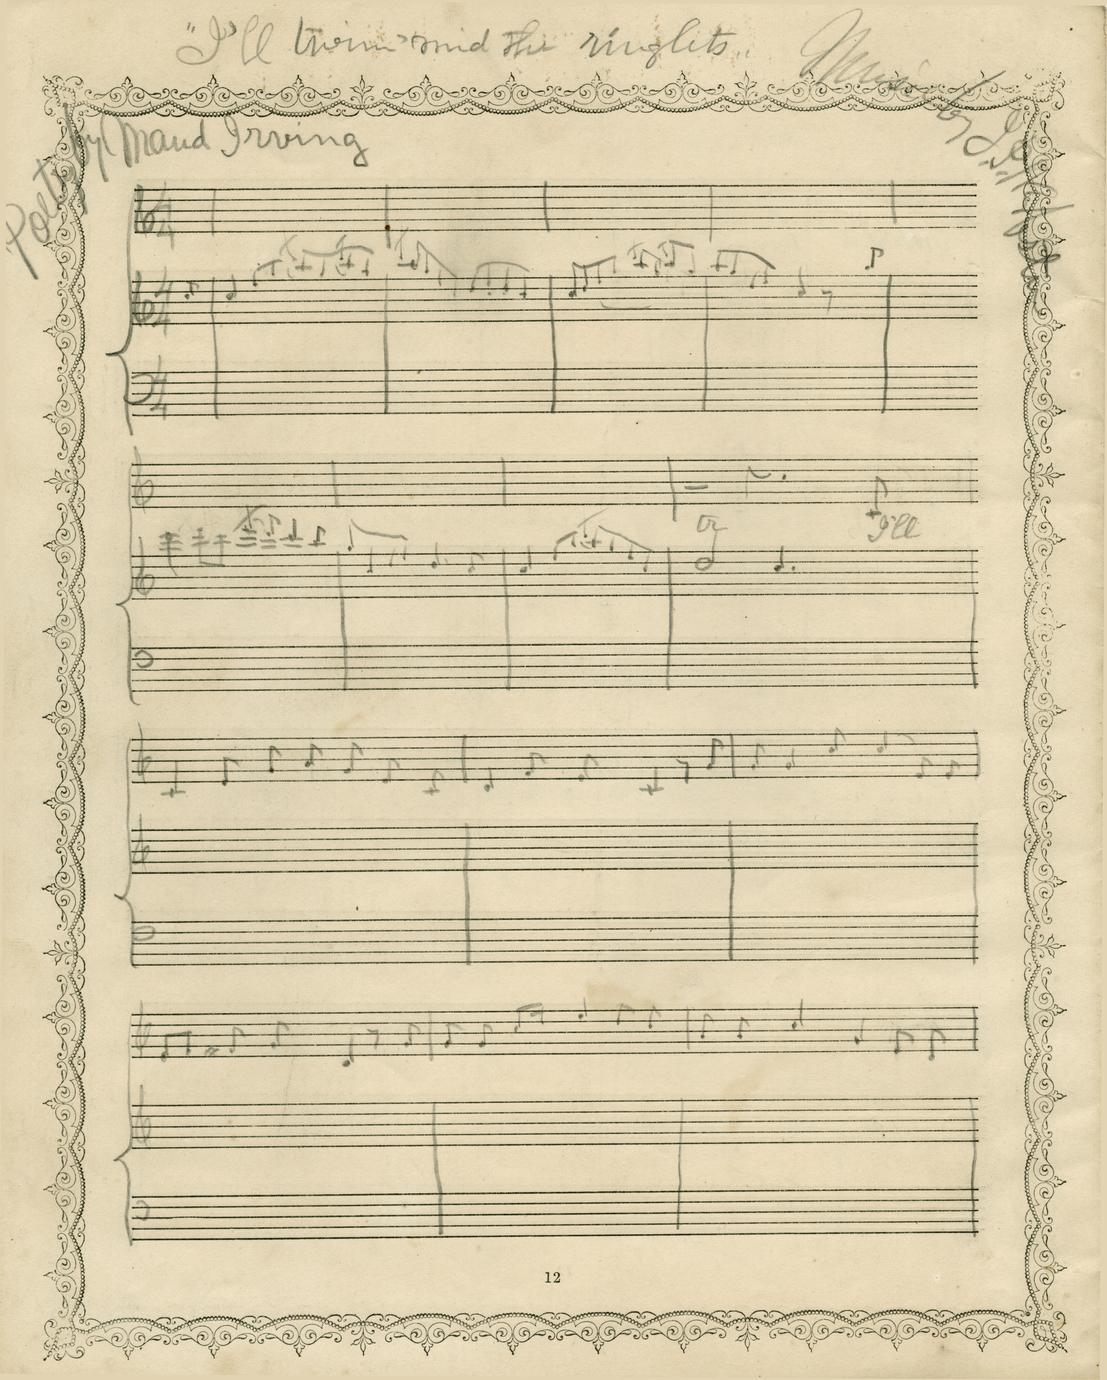 "I'll twine 'mid the ringlets"
Poetry by Maud Irving
Music
I'll
12